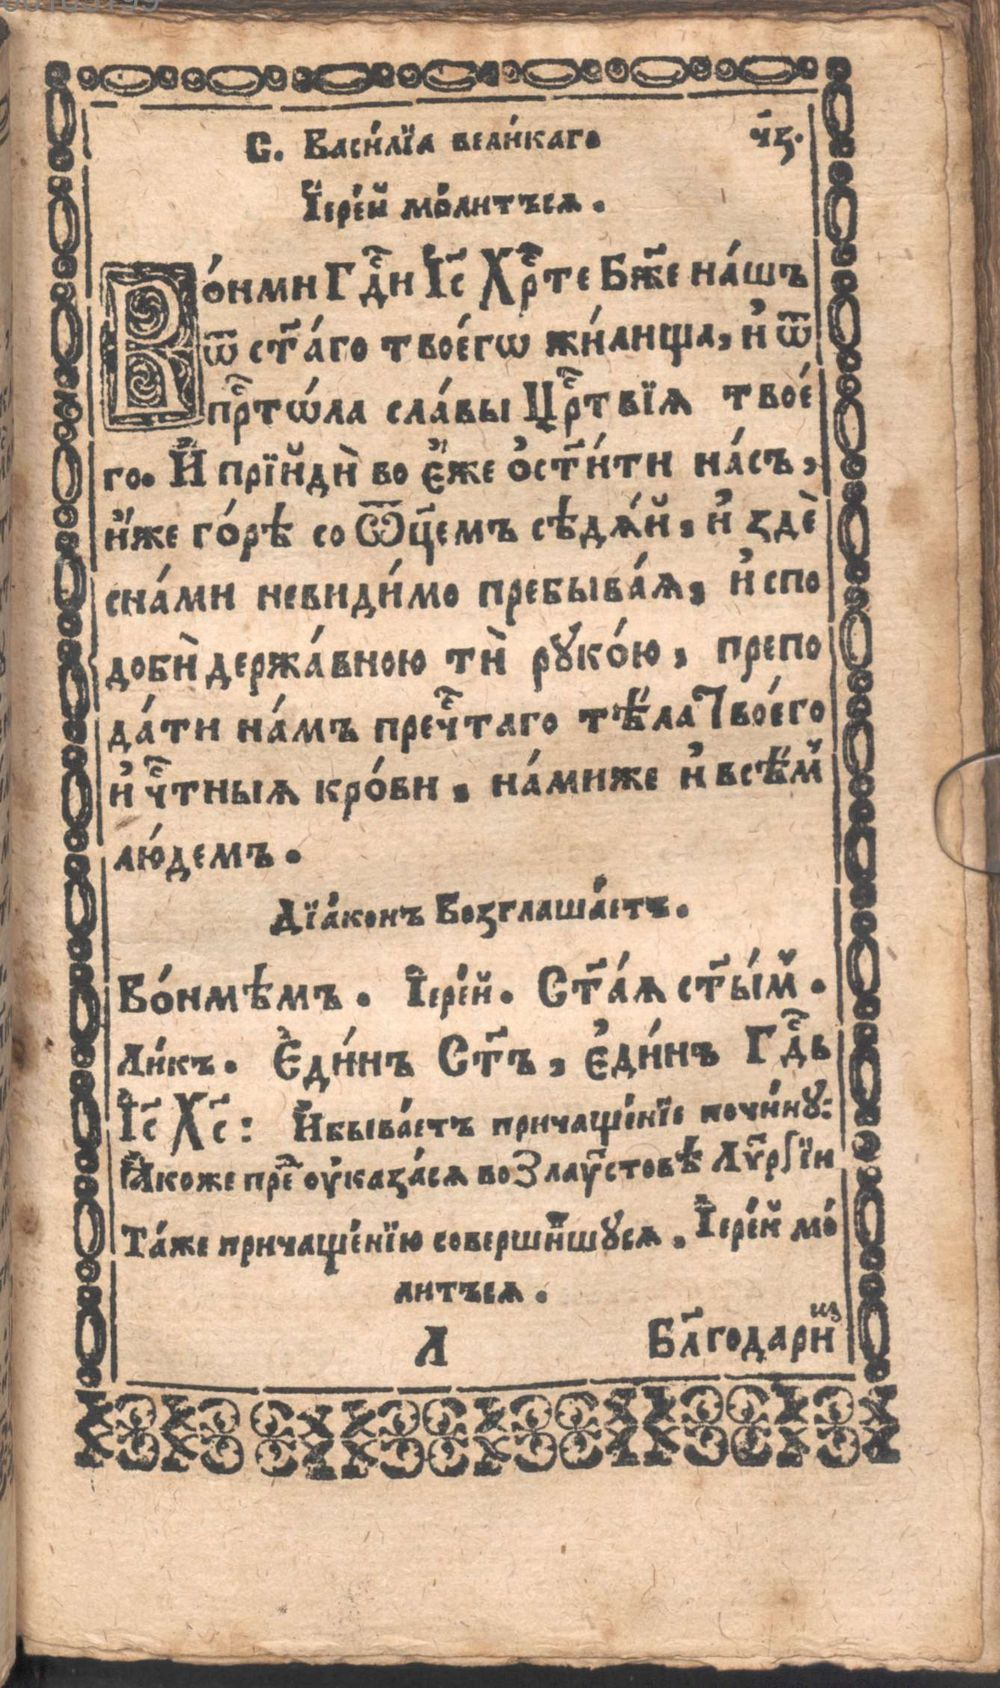 С. Васи́лїа вели́каго ч҃з.
Їере́й мо́литъсѧ.
Во́нми Гдⷭ҇и І҆с҃ Хрⷭ҇те Бж҃е на́шъ
ѿ ст҃а́го твоегѡ̀ жи́лища, и҆ ѿ
прⷭ҇то́ла сла́вы Црⷭ҇твїѧ твое́
го. И҆ прїйдѝ во є҆́же ѻ҆ст҃и́ти на́съ,
и҆́же го́рѣ со Ѿц҃емъ сѣдѧ́й, и҆ здѐ
сна́ми неви́димо пребыва́ѧ, и҆ спо
добѝ держа́вною тѝ рꙋко́ю, препо
да́ти на́мъ пречⷭ҇таго тѣ́ла Твоего
и҆ чⷭ҇тныѧ кро́ви, на́миже и҆ всѣ́м̾
лю́демъ.
Дїа́конъ Возглаша́етъ.
Во́нмѣмъ. Їере́й. Ст҃а́ѧ ст҃ы́м̾.
Ли́къ. Є҆ди́нъ Ст҃ъ, є҆ди́нъ Гдⷭ҇ь
І҆с҃ Хс҃: И҆быва́етъ причаще́нїе почи́нꙋ:
Ꙗ҆коже преⷣ ᲂу҆каза́сѧ во Злаꙋⷭ҇товѣ Лѵⷮрґїи
Та́же причаще́нїю соверши́вшꙋсѧ, Їере́й мо́
литъсѧ.
Л Бл҃годари́м̾